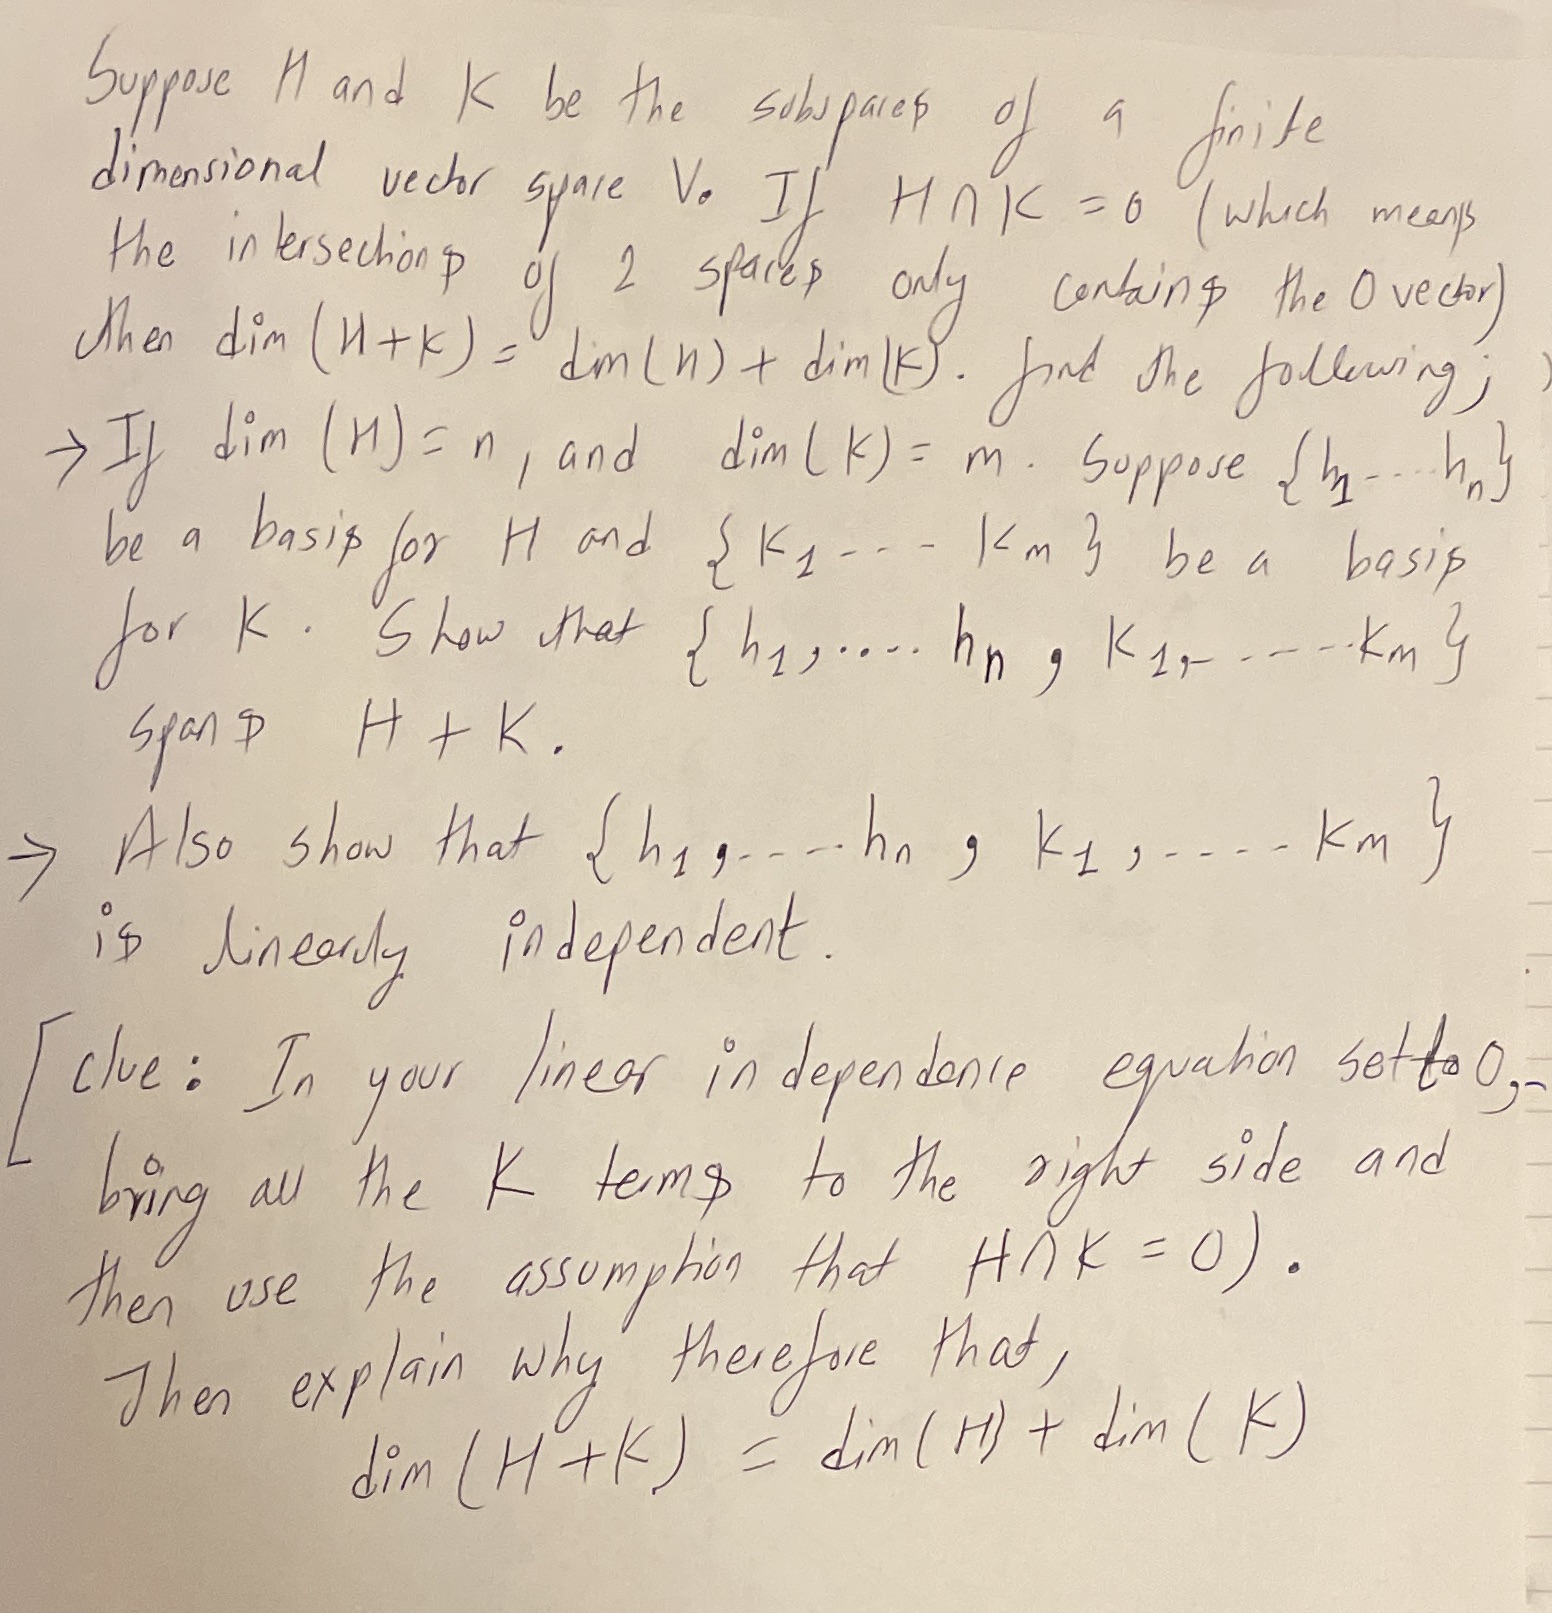 Suppose H and K be the subspaces of a finite
dimensional vector space V. If H ∩ K = 0 (which means
the intersections of 2 spaces only contains the 0 vector)
then dim (H+K) = dim(H) + dim(K). find the following;
→ If dim (H) = n, and dim(K) = m. Suppose {h1----hn}
be a basis for H and {K1--- Km} be a basis
for K. Show that {h1,.... hn, K1,-----Km}
spans H + K.
→ Also show that {h1,.----hn, K1,----Km}
is linearly independent.
[Clue: In your linear independence equation set to 0,-
bring all the K terms to the right side and
then use the assumption that H∩K = 0).
Then explain why therefore that,
dim (H+K) = dim(H) + dim(K)